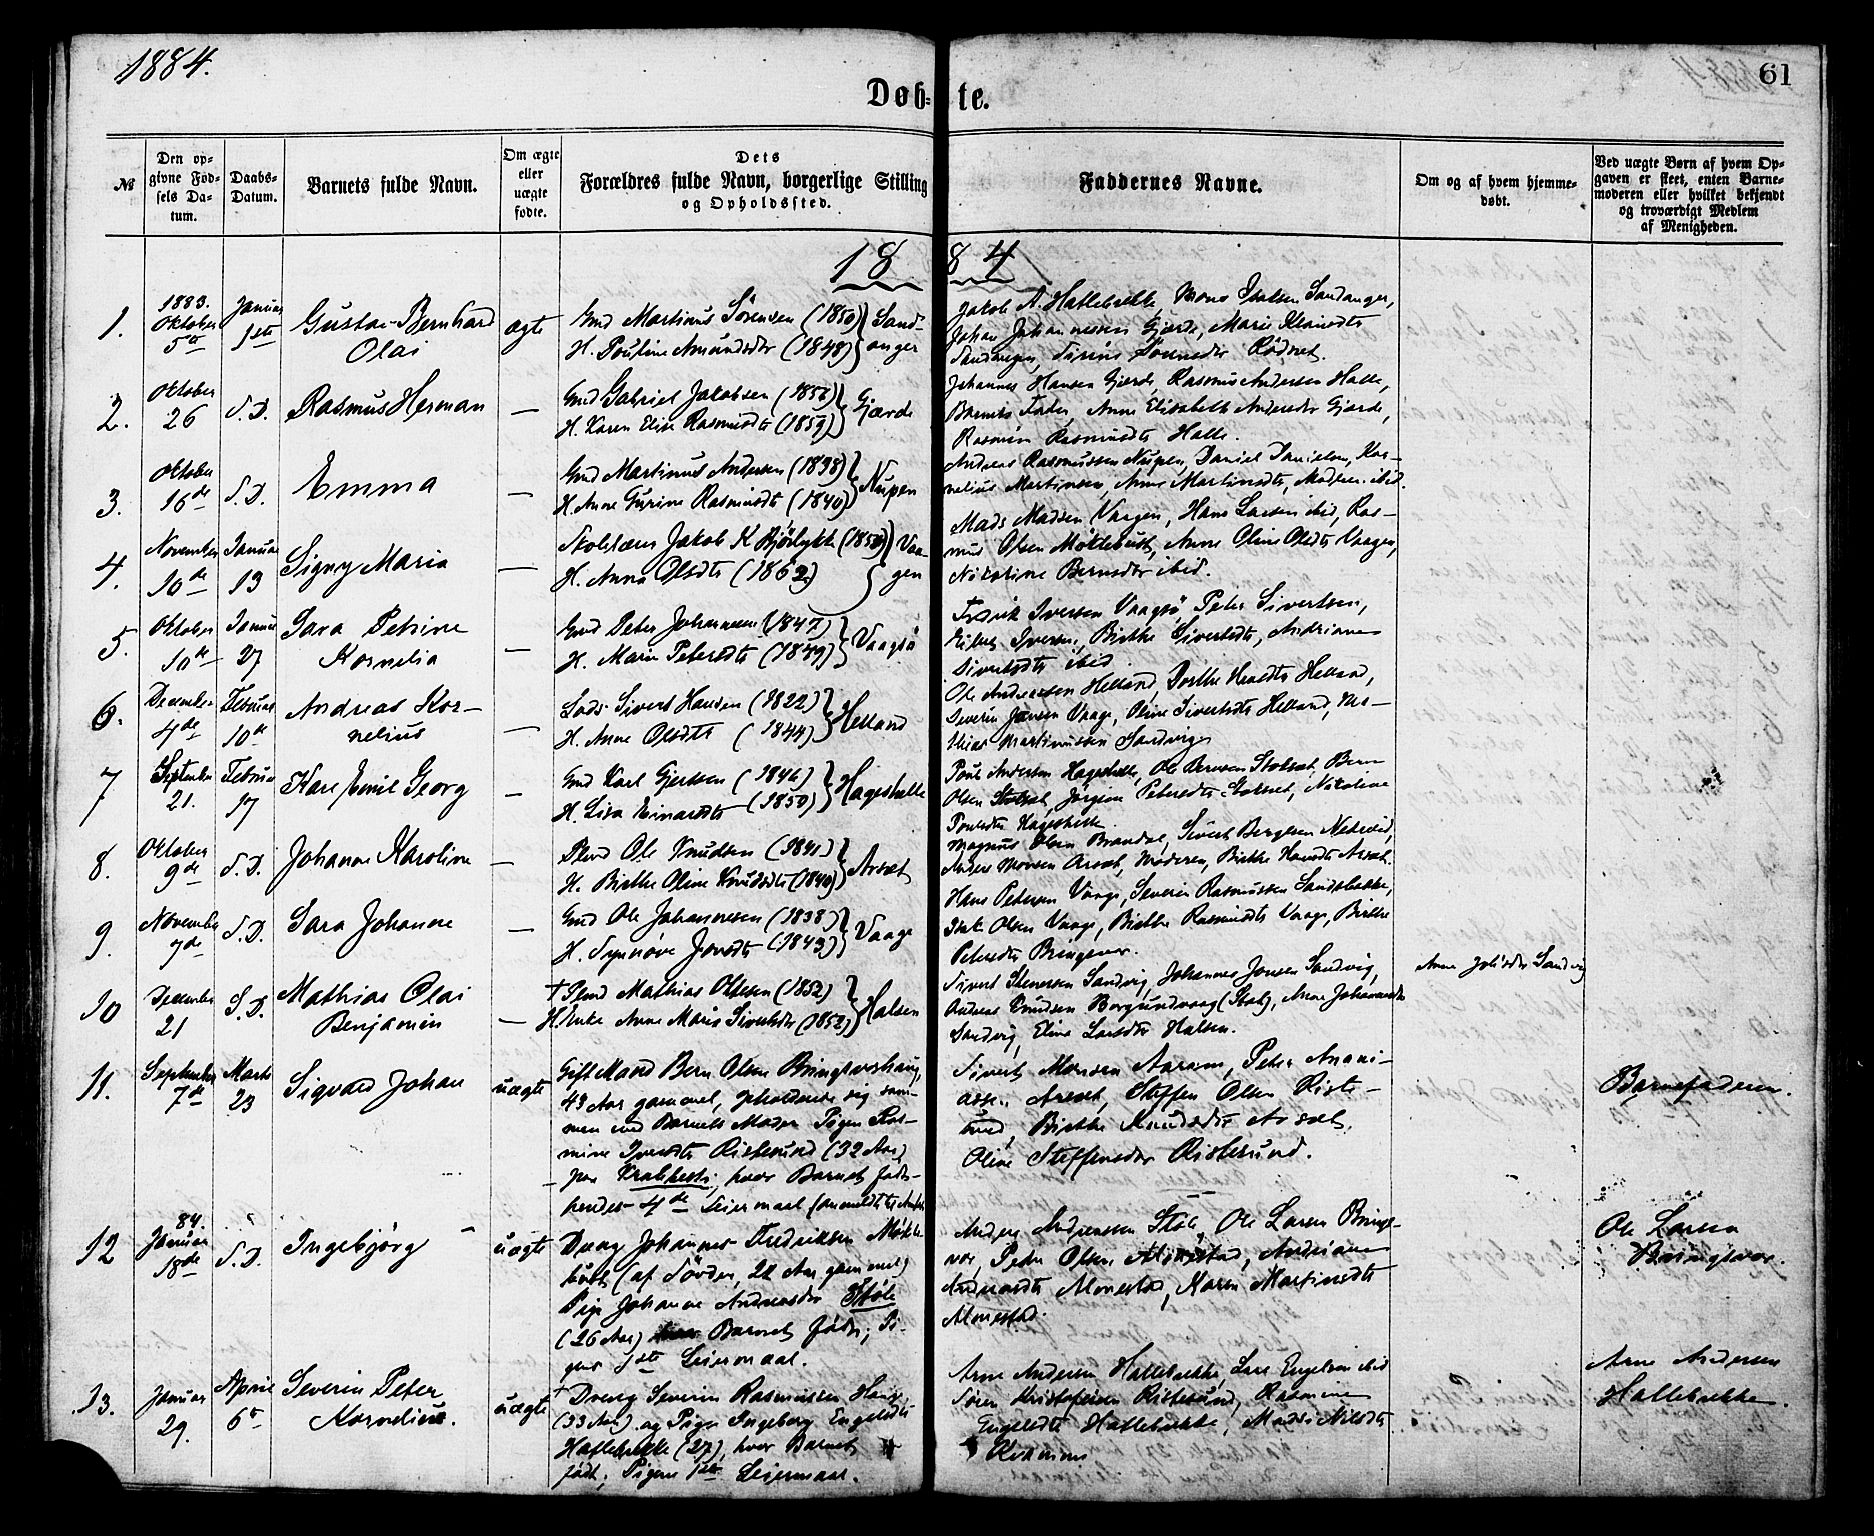 1884.
61
Døb-
te.
№
Den op-
givne Fød-
sels Da-
tum.
Daabs-
Datum.
Barnets fulde Navn.
Om ægte
eller
uægte
fødte.
Dets
Forældres fulde Navn, borgerlige Stilling
og Opholdssted.
Faddernes Navne.
Om og af hvem hjemme-
døbt.
Ved uægte Børn af hvem Op-
gaven er skeet, enten Barne-
moderen eller hvilket bekjendt
og troværdigt Medlem
af Menigheden.
18 84
1.
1883.
Oktober
5te
Januar
1ste
Gustav Bernhard
Olai
ægte
Gmd Martinus Sørensen (1850)
H. Pouline Amundsdtr (1848)
Sand-
anger
Jakob A. Hallebrekke, Mons Sandanger,
Johan Johannessen Gjærde, Marie
Sandanger,
2.
Oktober
26
S. D.
Rasmus Herman
—
Gmd Gabriel Jakobsen (1856)
H. Karen Elise Rasmusdtr (1859)
Gjærde
Johannes Hansen Gjerde, Rasmus Andersen Halle,
Barnets Fader, Anne Elisabeth Andersdtr Gjærde,
Rasmine Rasmusdtr Halle.
3.
Oktober
16de
S. D.
Emma
—
Gmd Martinus Andersen (1838)
H. Anne Gurine Rasmusdtr (1840)
Nupen
Andreas Rasmussen Nupen, Daniel Danielsen, Kor-
nelius Martinsen, Anne Martinsdtr, Moderen ibid.
4.
November
10de
Januar
13
Signy Maria
—
Skolelærer Jakob K Bjørlykke (1850)
H. Anna Olsdtr (1862)
Vaa-
gen
Mads Madsen Vaagen, Hans Larsen ibid, Ras-
mus Olsen Møkkebust, Anne Oline Olsdtr Vaagen,
Nikoline Berntsdtr ibid.
5.
Oktober
10de
Januar
27
Sara Petrine
Kornelia
—
Gmd Peter Johannesen (1847)
H. Marie Petersdtr (1849)
Vaagsø
Fredrik Iversen Vaagsø, Peter Sivertsen,
Iversen, Birthe Sivertsdtr, Andriane
Sivertsdtr ibid.
6.
December
4de
Februar
10de
Andreas Kor-
nelius
—
Lods Sivert Hansen (1822)
H. Anne Olsdtr (1844)
Helland
Ole Andreassen Helland, Dorthe Helland,
Severin Jansen Vaage, Oline Sivertsdtr Helland, Ma-
thias Martinussen Sandvig
7
September
21.
Februar
17
Karl Emil Georg
—
Gmd Karl Gjertsen (1846)
H. Lisa Einarsdtr (1850)
Hageskelle
Poul Andersen Hageskelle, Ole Berntsen Stokset, Bern
Olsen Stokset, Jørgine Petersdtr Stokset, Nikoline
Poulsdtr Hageskelle.
8.
Oktober
9de
S. D.
Johanne Karoline
—
Ole Knudsen (1841)
H. Birthe Oline Knudsdtr (1840)
Arset
Magnus Olsen Brandal, Sivert Bergesen
Anders Monsen Arset, Moderen, Birthe Arset.
9
November
7de
S. D.
Sara Johanne
—
Gmd Ole Johannesen (1838)
H. Synnøve Jonsdtr (1843)
Vaage
Hans Petersen Vaage, Severin Rasmussen Sandsbakke,
Olsen Vaage, Birthe Rasmusdtr Vaage, Birthe
Petersdtr Bringsvor.
10
December
21
S. D.
Mathias Olai
Benjamin
—
† Mathias Olsen (1852)
H. Enke Anne Marie Sivertsdtr (1852)
Halsen
Sivert Stenersen Sandvig, Johannes Jonsen Sandvig,
Anders Knudsen Borgundvaag (Stat), Anne Johannesdtr
Sandvig, Eline Larsdtr Halsen.
Anne Sandvig
11.
September
7de
Marts
23
Sigvard Johan
uægte
Gift Mand Bern Olsen Bringsvorhaug,
43 Aar gammel, opholdende sig sam-
men med Barnets Moder Pigen Ras-
mine Iversdtr Ristesund (32 Aar)
paa Krabbesti, hvor Barnet født,
hendes 4de Leiermaal
Sivert Monsen Aarsen, Peter Anani-
assen Arset, Steffen Olsen Riste-
sund, Birthe Knudsdtr Arset.
Oline Steffensdtr Ristesund.
Barnefaderen.
12
84.
Januar
18de
S. D.
Ingebjørg
uægte
Dreng Johannes Fredriksen Møkle-
bust (af Søvder, 22 Aar gammel)
Pige Johanne Andreasdtr Støle
(26 Aar) Barnet født, Pi-
gens 1ste Leiermaal.
Anders Andreassen Støle, Ole Larsen Brings-
vor, Peter Olsen Almestad, Andriane
Andreasdtr Almestad, Karen Martinsdtr
Almestad.
Ole Larsen
Bringsvor.
13.
Januar
29.
April
6te
Severin Peter
Kornelius.
uægte
† Dreng Severin Rasmussen Hauge
(33 Aar) og Pige Ingeborg Engelsdtr
Hallebrekke (27), hvor Barnet
født; Pigens 1ste Leiermaal.
Arne Andersen Hallebrekke, Lars Engelsen ibid
Søren Kristoffersen Ristesund, Rasmine
Engelsdtr Hallebrekke, Madsi Nilsdtr
Kvamme
Arne Andersen
Hallebrekke.